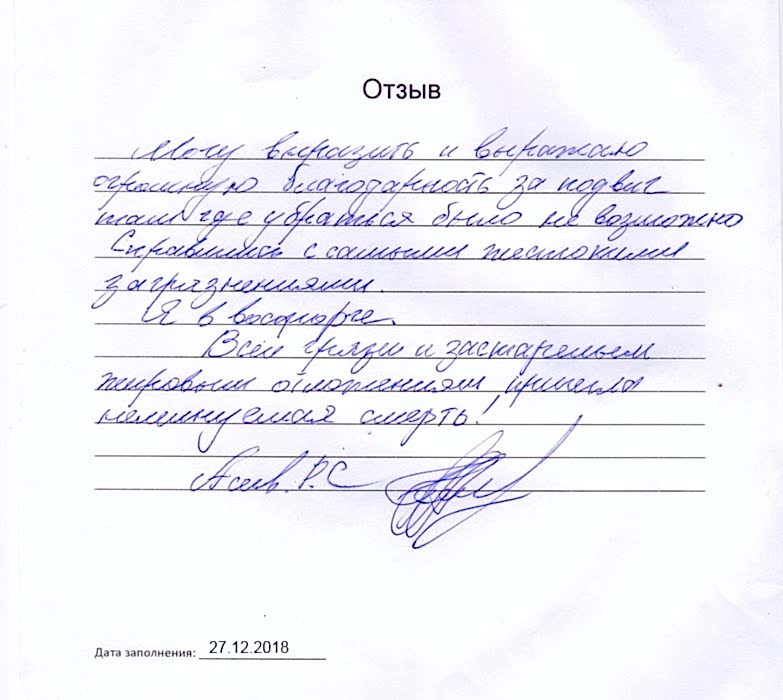 Отзыв
Могу выразить и выражаю
огромную благодарность за подвиг
там где убраться было не возможно
Справились с самыми жестокими
загрязнениями.
Я в восторге.
Всем грязи и застарелым
жировым отложениям, пришла
неминуемая смерть!
Р.С
Дата заполнения: 27.12.2018